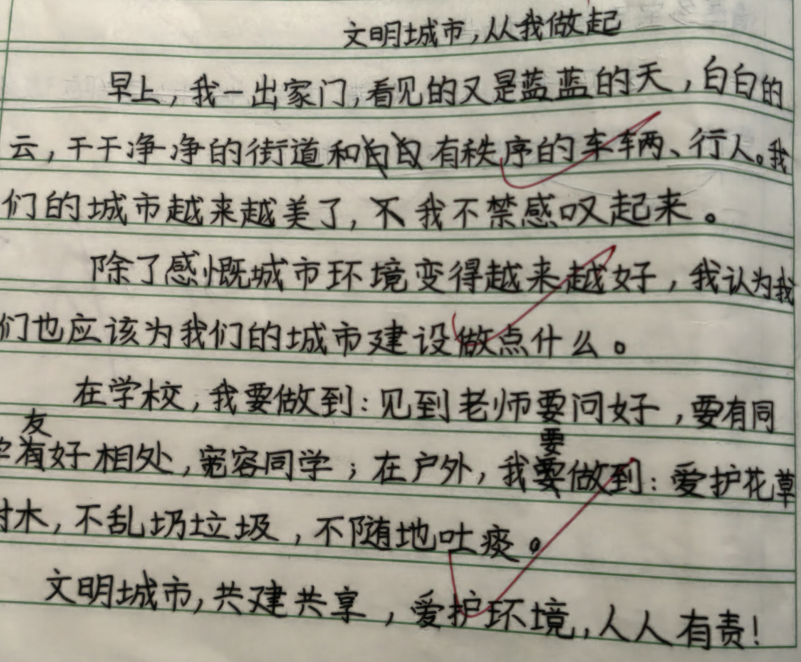 文明城市,从我做起
早上,我一出家门,看见的又是蓝蓝的天,白白的
云,干干净净的街道和有秩序的车辆、行人。我
们的城市越来越美了,我不禁感叹起来。
除了感慨城市环境变得越来越好,我认为我
们也应该为我们的城市建设做点什么。
在学校,我要做到:见到老师要问好,要有同
学友好相处,宽容同学;在户外,我要做到:爱护花草
树木,不乱扔垃圾,不随地吐痰。
文明城市,共建共享,爱护环境,人人有责!